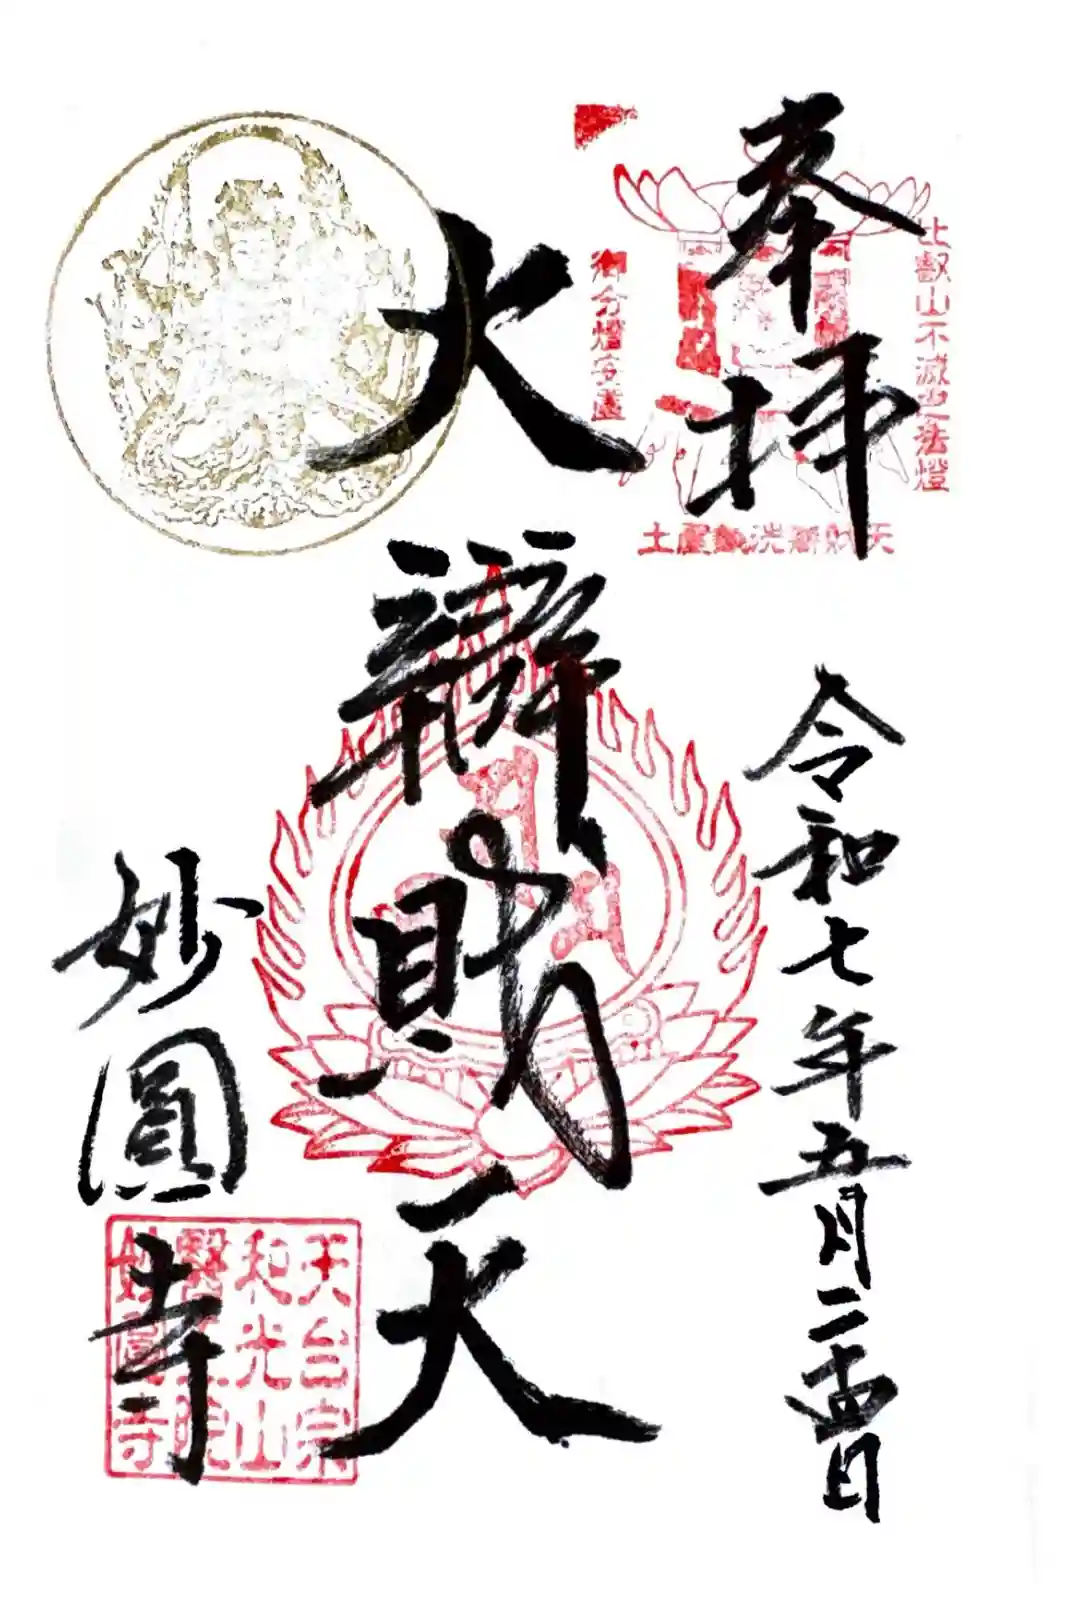 奉拝
比叡山不滅之法燈
御分燈安置
天財辯洗銭屋土
令和七年五月二十四日
大辯財天
妙圓寺
天台宗
和光山
醫王院
妙圓寺